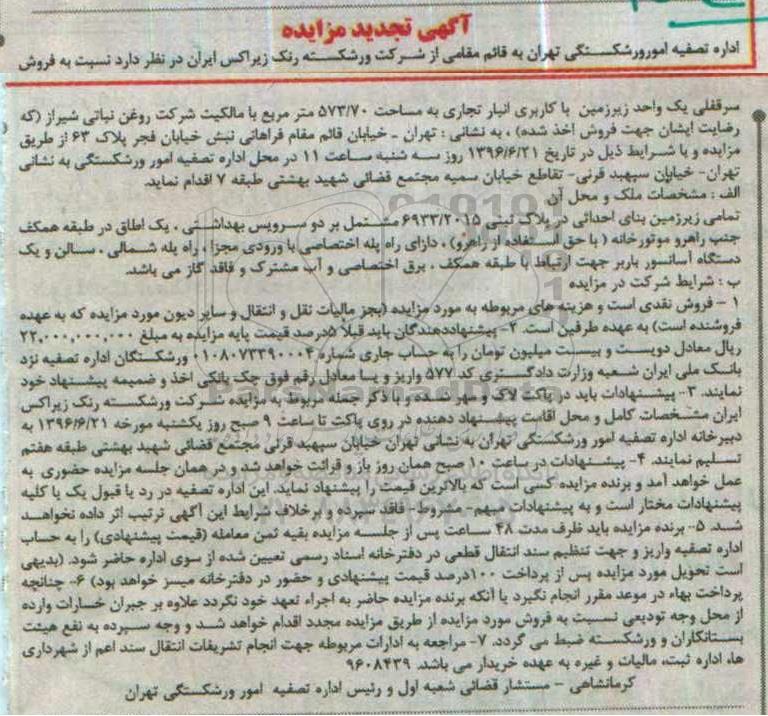 آگهی تجدید مزایده
اداره تصفیه امورورشکستگی تهران به قائم مقامی از شرکت ورشکسته رنک زیراکس ایران در نظر دارد نسبت به فروش
سرقفلی یک واحد زیرزمین با کاربری انبار تجاری به مساحت ۵۷۳/۷۰ متر مربع با مالکیت شرکت روغن نباتی شیراز (که
رضایت ایشان جهت فروش اخذ شده) ، به نشانی : تهران - خیابان قائم مقام فراهانی نبش خیابان فجر پلاک ۶۳ از طریق
مزایده و با شرایط ذیل در تاریخ ۱۳۹۶/۶/۲۱ روز سه شنبه ساعت ۱۱ در محل اداره تصفیه امور ورشکستگی به نشانی
تهران- خیابان سپهبد قرنی- تقاطع خیابان سمیه مجتمع قضائی شهید بهشتی طبقه ۷ اقدام نماید.
الف : مشخصات ملک و محل آن
تمامی زیرزمین بنای احداثی در پلاک ثبتی ۶۹۳۳/۲۰۱۵ مشتمل بر دو سرویس بهداشتی ، یک اطاق در طبقه همکف
جنب راهرو موتورخانه ( با حق استفاده از راهرو) ، دارای راه پله اختصاصی با ورودی مجزا ، راه پله شمالی ، سالن و یک
دستگاه آسانسور باربر جهت ارتباط با طبقه همکف ، برق اختصاصی و آب مشترک و فاقد گاز می باشد.
ب : شرایط شرکت در مزایده
۱ - فروش نقدی است و هزینه های مربوطه به مورد مزایده (بجز مالیات نقل و انتقال و سایر دیون مورد مزایده که به عهده
فروشنده است) به عهده طرفین است. ۲- پیشنهاددهندگان باید قبلاً ۵درصد قیمت پایه مزایده به مبلغ ۲۲,۰۰۰,۰۰۰,۰۰۰
ریال معادل دویست و بیست میلیون تومان را به حساب جاری شماره ۰۱۰۸۰۷۳۳۹۰۰۰۴ ورشکستگان اداره تصفیه نزد
بانک ملی ایران شعبه وزارت دادگستری کد ۵۷۷ واریز و یا معادل رقم فوق چک بانکی اخذ و ضمیمه پیشنهاد خود
نمایند. ۳- پیشنهادات باید در پاکت لاک و مهر شده و با ذکر جمله مربوط به مزایده شرکت ورشکسته رنک زیراکس
ایران مشخصات کامل و محل اقامت پیشنهاد دهنده در روی پاکت تا ساعت ۹ صبح روز یکشنبه مورخه ۱۳۹۶/۶/۲۱ به
دبیرخانه اداره تصفیه امور ورشکستگی تهران به نشانی تهران خیابان سپهبد قرنی مجتمع قضائی شهید بهشتی طبقه هفتم
تسلیم نمایند. ۴- پیشنهادات در ساعت ۱۰ صبح همان روز باز و قرائت خواهد شد و در همان جلسه مزایده حضوری به
عمل خواهد آمد و برنده مزایده کسی است که بالاترین قیمت را پیشنهاد نماید. این اداره تصفیه در رد یا قبول یک یا کلیه
پیشنهادات مختار است و به پیشنهادات مبهم- مشروط- فاقد سپرده و برخلاف شرایط این آگهی ترتیب اثر داده نخواهد
شد. ۵- برنده مزایده باید ظرف مدت ۴۸ ساعت پس از جلسه مزایده بقیه ثمن معامله (قیمت پیشنهادی) را به حساب
اداره تصفیه واریز و جهت تنظیم سند انتقال قطعی در دفترخانه اسناد رسمی تعیین شده از سوی اداره حاضر شود. (بدیهی
است تحویل مورد مزایده پس از پرداخت ۱۰۰درصد قیمت پیشنهادی و حضور در دفترخانه میسز خواهد بود) ۶- چنانچه
پرداخت بهاء در موعد مقرر انجام نگیرد یا آنکه برنده مزایده حاضر به اجراء تعهد خود نگردد علاوه بر جبران خسارات وارده
از محل وجه تودیعی نسبت به فروش مورد مزایده از طریق مزایده مجدد اقدام خواهد شد و وجه سپرده به نفع هیئت
بستانکاران و ورشکسته ضبط می گردد. ۷- مراجعه به ادارات مربوطه جهت انجام تشریفات انتقال سند اعم از شهرداری
ها، اداره ثبت، مالیات و غیره به عهده خریدار می باشد. ۹۶۰۸۴۳۹
کرمانشاهی - مستشار قضائی شعبه اول و رئیس اداره تصفیه امور ورشکستگی تهران